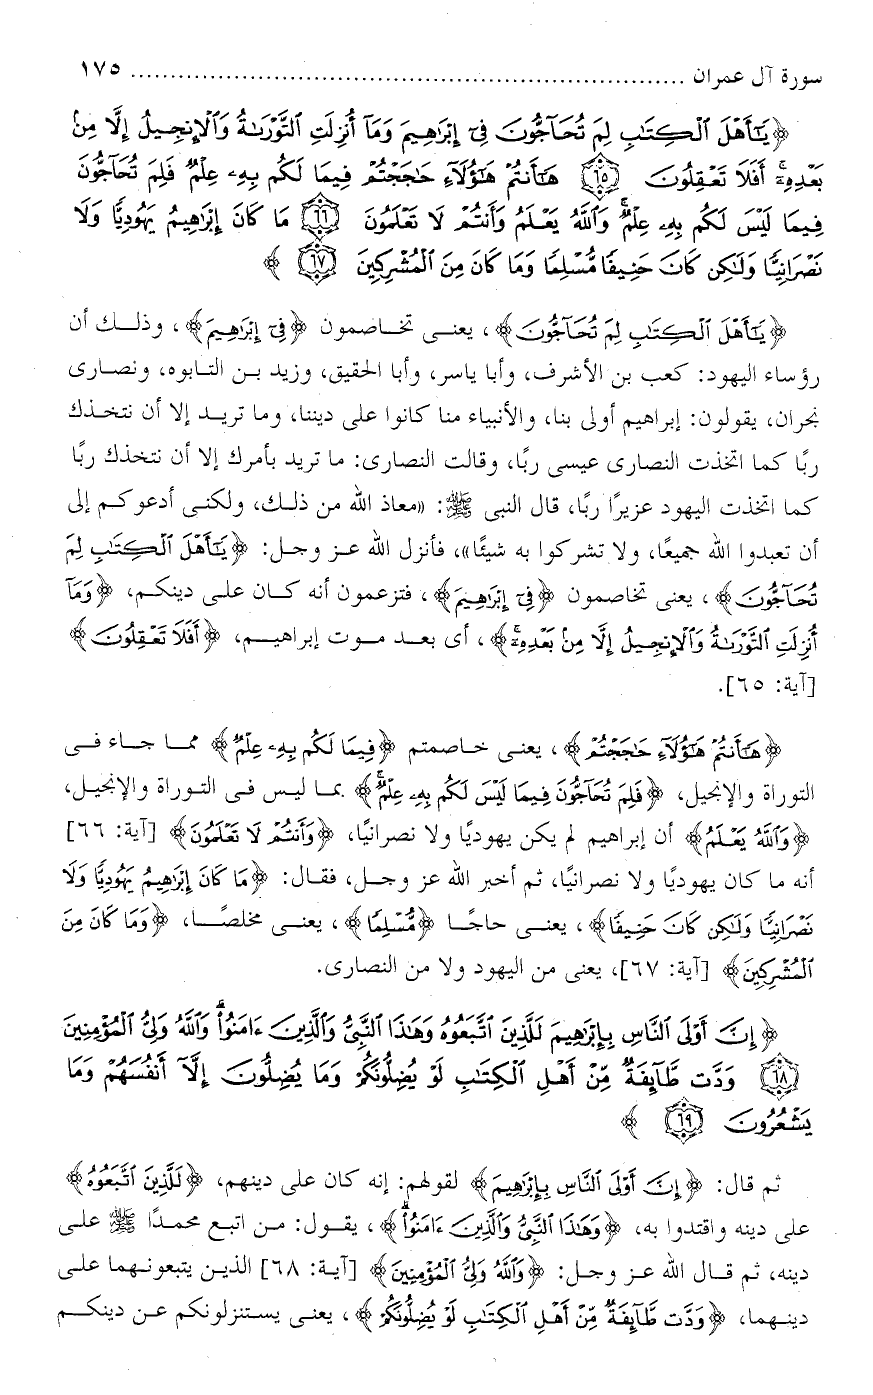 سورة آل عمران ........................................................................ ١٧٥
﴿يَٰٓأَهْلَ ٱلْكِتَٰبِ لِمَ تُحَآجُّونَ فِىٓ إِبْرَٰهِيمَ وَمَآ أُنزِلَتِ ٱلتَّوْرَىٰةُ وَٱلْإِنجِيلُ إِلَّا مِنۢ
بَعْدِهِۦٓ ۚ أَفَلَا تَعْقِلُونَ ٦٥ هَٰٓأَنتُمْ هَٰٓؤُلَآءِ حَٰجَجْتُمْ فِيمَا لَكُم بِهِۦ عِلْمٌ فَلِمَ تُحَآجُّونَ
فِيمَا لَيْسَ لَكُم بِهِۦ عِلْمٌ ۚ وَٱللَّهُ يَعْلَمُ وَأَنتُمْ لَا تَعْلَمُونَ ٦٦ مَا كَانَ إِبْرَٰهِيمُ يَهُودِيًّا وَلَا
نَصْرَانِيًّا وَلَٰكِن كَانَ حَنِيفًا مُّسْلِمًا وَمَا كَانَ مِنَ ٱلْمُشْرِكِينَ ٦٧ ﴾
﴿يَٰٓأَهْلَ ٱلْكِتَٰبِ لِمَ تُحَآجُّونَ﴾، يعنى تخاصمون ﴿فِىٓ إِبْرَٰهِيمَ﴾، وذلك أن
رؤساء اليهود: كعب بن الأشرف، وأبا ياسر، وأبا الحقيق، وزيد بن التابوه، ونصارى
نجران، يقولون: إبراهيم أولى بنا، والأنبياء منا كانوا على ديننا، وما تريد إلا أن نتخذك
ربًا كما اتخذت النصارى عيسى ربًا، وقالت النصارى: ما تريد بأمرك إلا أن نتخذك ربًا
كما اتخذت اليهود عزيرًا ربًا، قال النبى ﷺ: «معاذ الله من ذلك، ولكنى أدعوكم إلى
أن تعبدوا الله جميعًا، ولا تشركوا به شيئًا»، فأنزل الله عز وجل: ﴿يَٰٓأَهْلَ ٱلْكِتَٰبِ لِمَ
تُحَآجُّونَ﴾، يعنى تخاصمون ﴿فِىٓ إِبْرَٰهِيمَ﴾، فتزعمون أنه كان على دينكم، ﴿وَمَآ
أُنزِلَتِ ٱلتَّوْرَىٰةُ وَٱلْإِنجِيلُ إِلَّا مِنۢ بَعْدِهِۦٓ ۚ﴾، أى بعد موت إبراهيم، ﴿أَفَلَا تَعْقِلُونَ﴾
[آية: ٦٥].
﴿هَٰٓأَنتُمْ هَٰٓؤُلَآءِ حَٰجَجْتُمْ﴾، يعنى خاصمتم ﴿فِيمَا لَكُم بِهِۦ عِلْمٌ﴾ مما جاء فى
التوراة والإنجيل، ﴿فَلِمَ تُحَآجُّونَ فِيمَا لَيْسَ لَكُم بِهِۦ عِلْمٌ ۚ﴾ بما ليس فى التوراة والإنجيل،
﴿وَٱللَّهُ يَعْلَمُ﴾ أن إبراهيم لم يكن يهوديًا ولا نصرانيًا، ﴿وَأَنتُمْ لَا تَعْلَمُونَ﴾ [آية: ٦٦]
أنه ما كان يهوديًا ولا نصرانيًا، ثم أخبر الله عز وجل، فقال: ﴿مَا كَانَ إِبْرَٰهِيمُ يَهُودِيًّا وَلَا
نَصْرَانِيًّا وَلَٰكِن كَانَ حَنِيفًا﴾، يعنى حاجًا ﴿مُّسْلِمًا﴾، يعنى مخلصًا، ﴿وَمَا كَانَ مِنَ
ٱلْمُشْرِكِينَ﴾ [آية: ٦٧]، يعنى من اليهود ولا من النصارى.
﴿إِنَّ أَوْلَى ٱلنَّاسِ بِإِبْرَٰهِيمَ لَلَّذِينَ ٱتَّبَعُوهُ وَهَٰذَا ٱلنَّبِىُّ وَٱلَّذِينَ ءَامَنُوا۟ ۗ وَٱللَّهُ وَلِىُّ ٱلْمُؤْمِنِينَ
٦٨ وَدَّت طَّآئِفَةٌ مِّنْ أَهْلِ ٱلْكِتَٰبِ لَوْ يُضِلُّونَكُمْ وَمَا يُضِلُّونَ إِلَّآ أَنفُسَهُمْ وَمَا
يَشْعُرُونَ ٦٩ ﴾
ثم قال: ﴿إِنَّ أَوْلَى ٱلنَّاسِ بِإِبْرَٰهِيمَ﴾ لقولهم: إنه كان على دينهم، ﴿لَلَّذِينَ ٱتَّبَعُوهُ﴾
على دينه واقتدوا به، ﴿وَهَٰذَا ٱلنَّبِىُّ وَٱلَّذِينَ ءَامَنُوا۟ ۗ﴾، يقول: من اتبع محمدًا ﷺ على
دينه، ثم قال الله عز وجل: ﴿وَٱللَّهُ وَلِىُّ ٱلْمُؤْمِنِينَ﴾ [آية: ٦٨] الذين يتبعونهما على
دينهما، ﴿وَدَّت طَّآئِفَةٌ مِّنْ أَهْلِ ٱلْكِتَٰبِ لَوْ يُضِلُّونَكُمْ﴾، يعنى يستنزلونكم عن دينكم